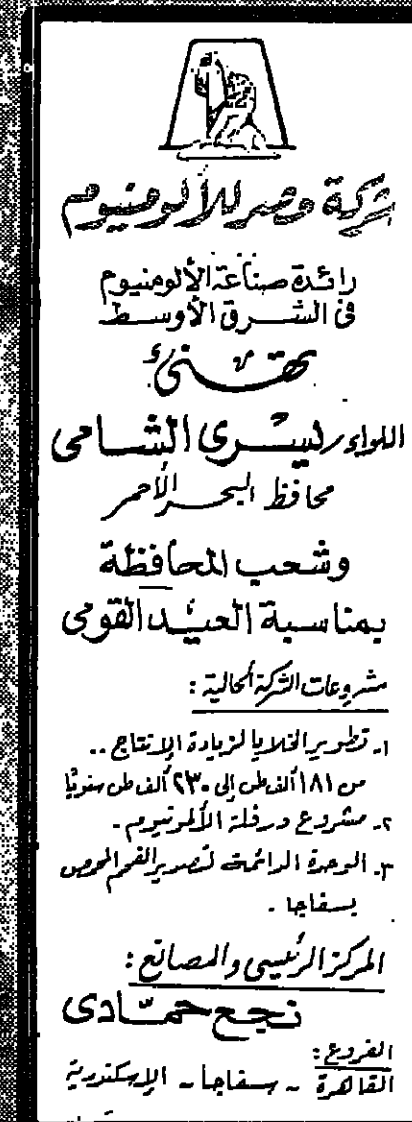 شركة مصر للألومنيوم
رائدة صناعة الألومنيوم
فى الشرق الأوسط
تهنئ
اللواء / يسرى الشامى
محافظ البحر الأحمر
وشعب المحافظة
بمناسبة العيد القومى
مشروعات الشركة الحالية :
١ـ تطوير الخلايا لزيادة الإنتاج ..
من ١٨١ ألف طن إلى ٢٣٠ ألف طن سنويًا
٢ـ مشروع درفلة الألومنيوم .
٣ـ الوحدة الدائمة لتصدير الفحم المحمص
بسفاجا .
المركز الرئيسى والمصانع :
نجع حمّادى
الفروع :
القاهرة ـ سفاجا ـ الإسكندرية